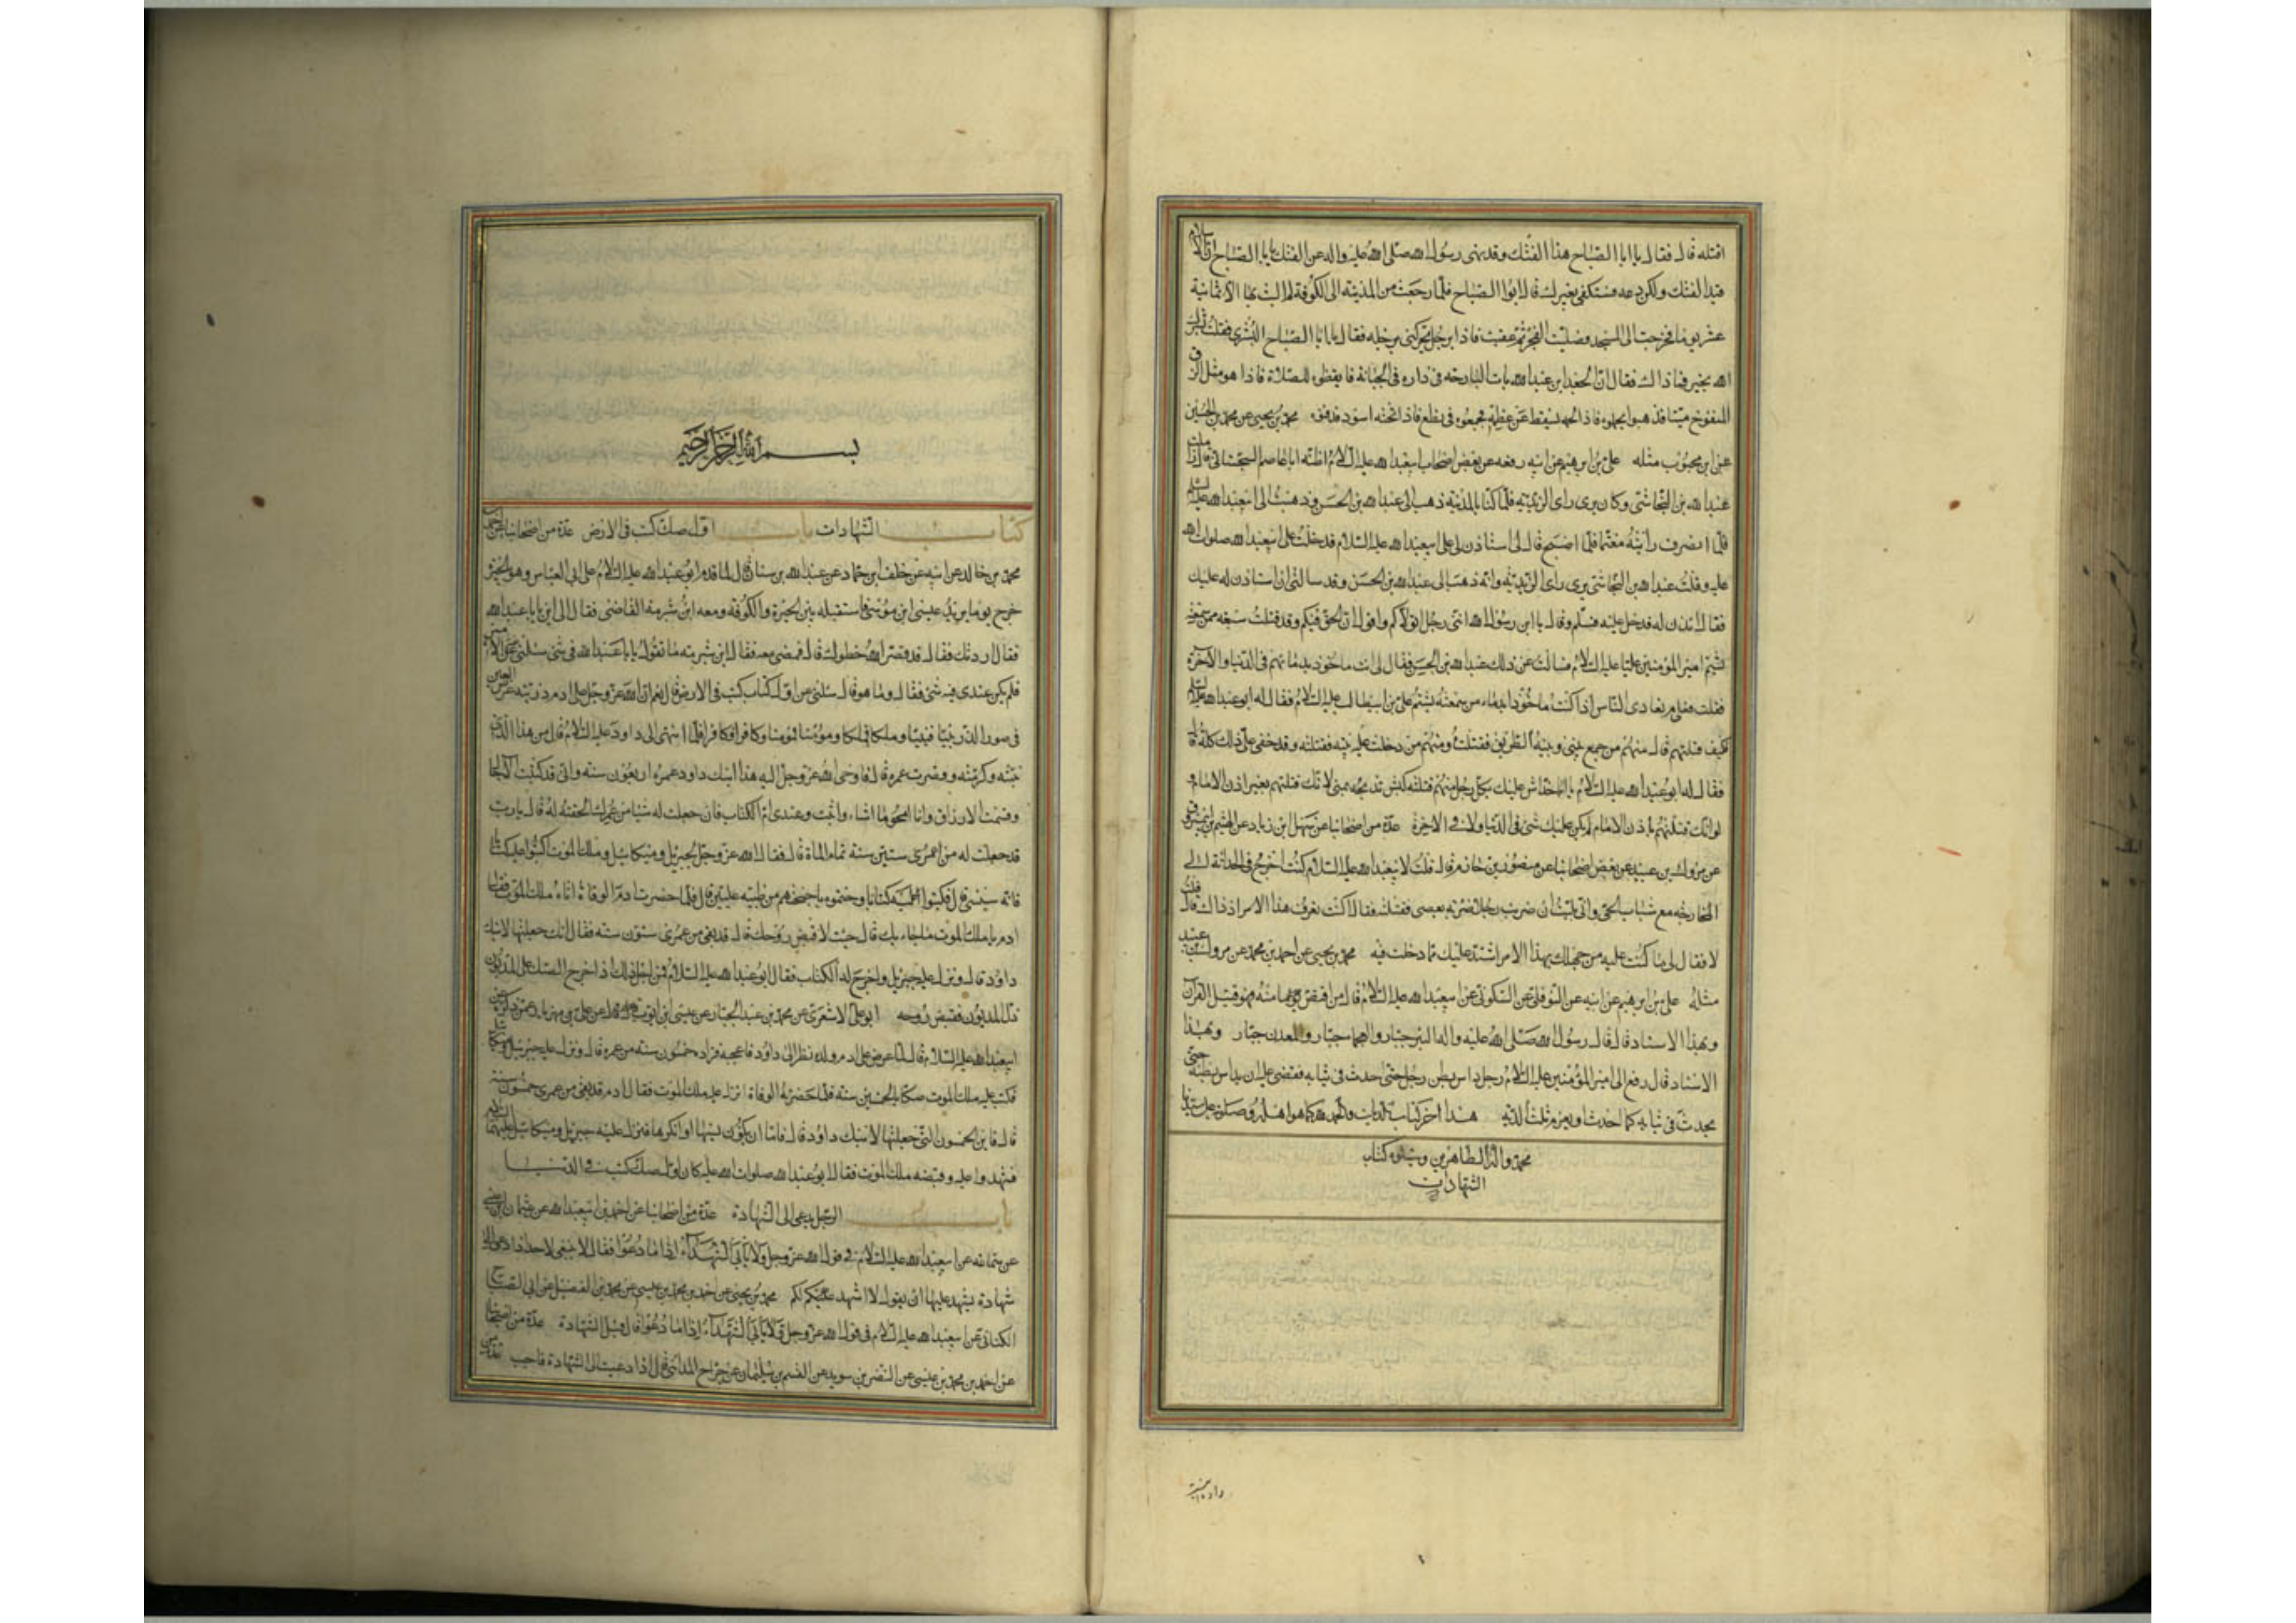 اقتله قال فقال يا ابا الصباح هذا الفتك وقد نهى رسول الله صلى الله عليه واله عن الفتك يا ابا الصباح ان الاسلام
قيد الفتك ولكن دعه فستكفى بغيرك قال ابوا الصباح فلما رجعت من المدينة الى الكوفة لم البث بها الا ثمانية
عشر يوما فخرجت الى المسجد فصليت الفجر ثم عقبت فاذا رجل يحركنى برجله فقال يا ابا الصباح البشرى فقلت بشرك
الله بخير فما ذاك فقال ان الجعد ابن عبد الله بات البارحة فى داره فى الجبانة فايقظوه للصلاة فاذا هو مثل الزق
المنفوخ ميتا فذهبوا يحملوه فاذا لحمه يسقط عن عظمه فجمعوه فى نطع فاذا تحته اسود فدفنوه محمد بن يحيى عن محمد بن الحسين
عن ابن محبوب مثله على بن ابرهيم عن ابيه رفعه عن بعض اصحاب ابيعبد الله عليه السلام اظنه ابا عاصم السجستانى قال زاملت
عبد الله بن النجاشى وكان يرى راى الزيدية فلما كنا بالمدينة ذهب الى عبد الله بن الحسن وذهبت الى ابيعبد الله عليه السلم
فلما انصرف رايته مغتما فلما اصبح قال لى استاذن لى على ابيعبد الله عليه السلام فدخلت على ابيعبد الله صلوات الله
عليه وقلت عبد الله بن النجاشى يرى راى الزيدية وانه ذهب الى عبد الله بن الحسن وقد سالنى ان استاذن له عليك
فقال ائذن له فدخل عليه فسلم وقال يا ابن رسول الله انى رجل اتولاكم واقول ان الحق فيكم وقد قتلت سبعة ممن سمعته
يشتم امير المؤمنين عليا عليه السلام فسالت عن ذلك عبد الله بن الحسن فقال لى انت ماخوذ بدمائهم فى الدنيا والآخرة
فقلت فعلى م نعادى الناس اذا كنت ماخوذا بدماء من سمعته يشتم على بن ابيطالب عليه السلام فقال له ابو عبد الله عليه السلم
فكيف قتلتهم قال منهم من جمع بينى وبينه الطريق فقتلته ومنهم من دخلت عليه بيته فقتلته وقد خفى على ذلك كله قال
فقال له ابو عبد الله عليه السلام يا ابا خداش عليك بكل رجل منهم قتلته كبش تذبحه بمنى لانك قتلتهم بغير اذن الامام و
لو انك قتلتهم باذن الامام لم يكن عليك شى فى الدنيا ولا فى الاخرة عدة من اصحابنا عن سهل ابن زياد عن الهيثم بن
عن مروك بن عبيد عن بعض اصحابنا عن منصور بن حازم قال قلت لابيعبد الله عليه السلام كنت اخرج فى الحداثة الى
المخارجة مع شباب الحى وانى بليت ان ضربت رجلا ضربة بعصى فقتلته فقال اكنت تعرف هذا الامر اذ ذاك قال قلت
لا فقال لى ما كنت عليه من جهلك بهذا الامر اشد عليك مما دخلت فيه محمد بن يحيى عن احمد بن محمد عن مروك بن عبيد
مثله على بن ابرهيم عن ابيه عن النوفلى عن السكونى عن ابيعبد الله عليه السلام قال من اقتص منه فهو قتيل القرآن
وبهذا الاسناد قال قال رسول الله صلى الله عليه واله البئر جبار والعجما جبار والمعدن جبار وبهذا
الاسناد قال رفع الى امير المؤمنين عليه السلام رجل داس بطن رجل حتى احدث فى ثيابه فقضى عليه ان يداس بطنه حتى
يحدث فى ثيابه كما احدث او يغرم ثلث الدية هذا اخر كتاب الديات والحمد لله كما هو اهله وصلواته على سيدنا
محمد واله الطاهرين ويتلوه كتاب
الشهادات
بسم الله الرحمن الرحيم
كتاب الشهادات باب اول صك كتب فى الارض عدة من اصحابنا عن احمد بن
محمد بن خالد عن ابيه عن خلف ابن حماد عن عبد الله بن سنان قال لما قدم ابو عبد الله عليه السلام على ابى العباس وهو بالحيرة
خرج يوما يريد عيسى ابن موسى فاستقبله بين الحيرة والكوفة ومعه ابن شبرمة القاضى فقال الى اين يا با عبد الله
فقال اردتك فقال قد قصر الله خطوك قال فمضى معه فقال ابن شبرمة ما تقول يا با عبد الله فى شى سئلنى عنه الامير
فلم يكن عندى فيه شى فقال وما هو قال سئلنى عن اول كتاب كتب فى الارض قال نعم ان الله عز وجل عرض على ادم ذريته عرض العين
فى صور الذر نبيا فنبيا وملكا فملكا ومؤمنا فمومنا وكافرا فكافرا فلما انتهى الى داود عليه السلام قال من هذا الذى
نبئته وكرمته وقصرت عمره قال فاوحى الله عز وجل اليه هذا ابنك داود عمره اربعون سنة وانى قد كتبت الاجال
وقسمت الارزاق وانا امحو ما اشاء واثبت وعندى ام الكتاب فان جعلت له شيا من عمرك الحقته له قال يا رب
قد جعلت له من عمرى ستين سنة تمام الماة قال فقال الله عز وجل لجبريل وميكائيل وملك الموت اكتبوا عليه كتابا
فانه سينسى قال فكتبوا عليه كتابا وختموه باجنحتهم من طينة عليين قال فلما حضرت ادم الوفاة اتاه ملك الموت فقال
ادم يا ملك الموت ما جاء بك قال جئت لاقبض روحك قال قد بقى من عمرى ستون سنة فقال انك جعلتها لابنك
داود قال ونزل عليه جبريل واخرج له الكتاب فقال ابو عبد الله عليه السلام فمن اجل ذلك اذا اخرج الصك على المديون
ذل المديون فقبض روحه ابو على الاشعرى عن محمد بن عبد الجبار عن عيسى ابن ايوب عن على بن مهزيار عمن ذكره عن
ابيعبد الله عليه السلام قال لما عرض على ادم ولده نظر الى داود فاعجبه فزاده خمسون سنة من عمره قال ونزل عليه جبرئيل وميكائيل
فكتب عليه ملك الموت صكا بالخمسين سنة فلما حضرته الوفاة انزل عليه ملك الموت فقال ادم قد بقى من عمرى خمسون سنة
قال فاين الخمسون التى جعلتها لابنك داود قال فاما ان يكون نسيها او انكرها فنزل عليه جبريل وميكائيل عليهما السلام
فشهدوا عليه وقبضه ملك الموت فقال ابو عبد الله صلوات الله عليه كان اول صك كتب فى الدنيا
باب الرجل يدعى الى الشهادة عدة من اصحابنا عن احمد بن ابيعبد الله عن عثمان بن عيسى
عن سماعة عن ابيعبد الله عليه السلام فى قول الله عز وجل ولا يأبى الشهداء إذا ما دعوا فقال لا ينبغى لاحد اذا دعى الى
شهادة يشهد عليها ان يقول لا اشهد لكم محمد بن يحيى عن احمد بن محمد بن عيسى عن محمد بن الفضيل عن ابى الصباح
الكنانى عن ابيعبد الله عليه السلام فى قول الله عز وجل ولا يأبى الشهداء إذا ما دعوا قال قبل الشهادة عدة من اصحابنا
عن احمد بن محمد بن عيسى عن النضر بن سويد عن القسم بن سليمان عن جراح المدائنى قال اذا دعيت الى الشهادة فاجب